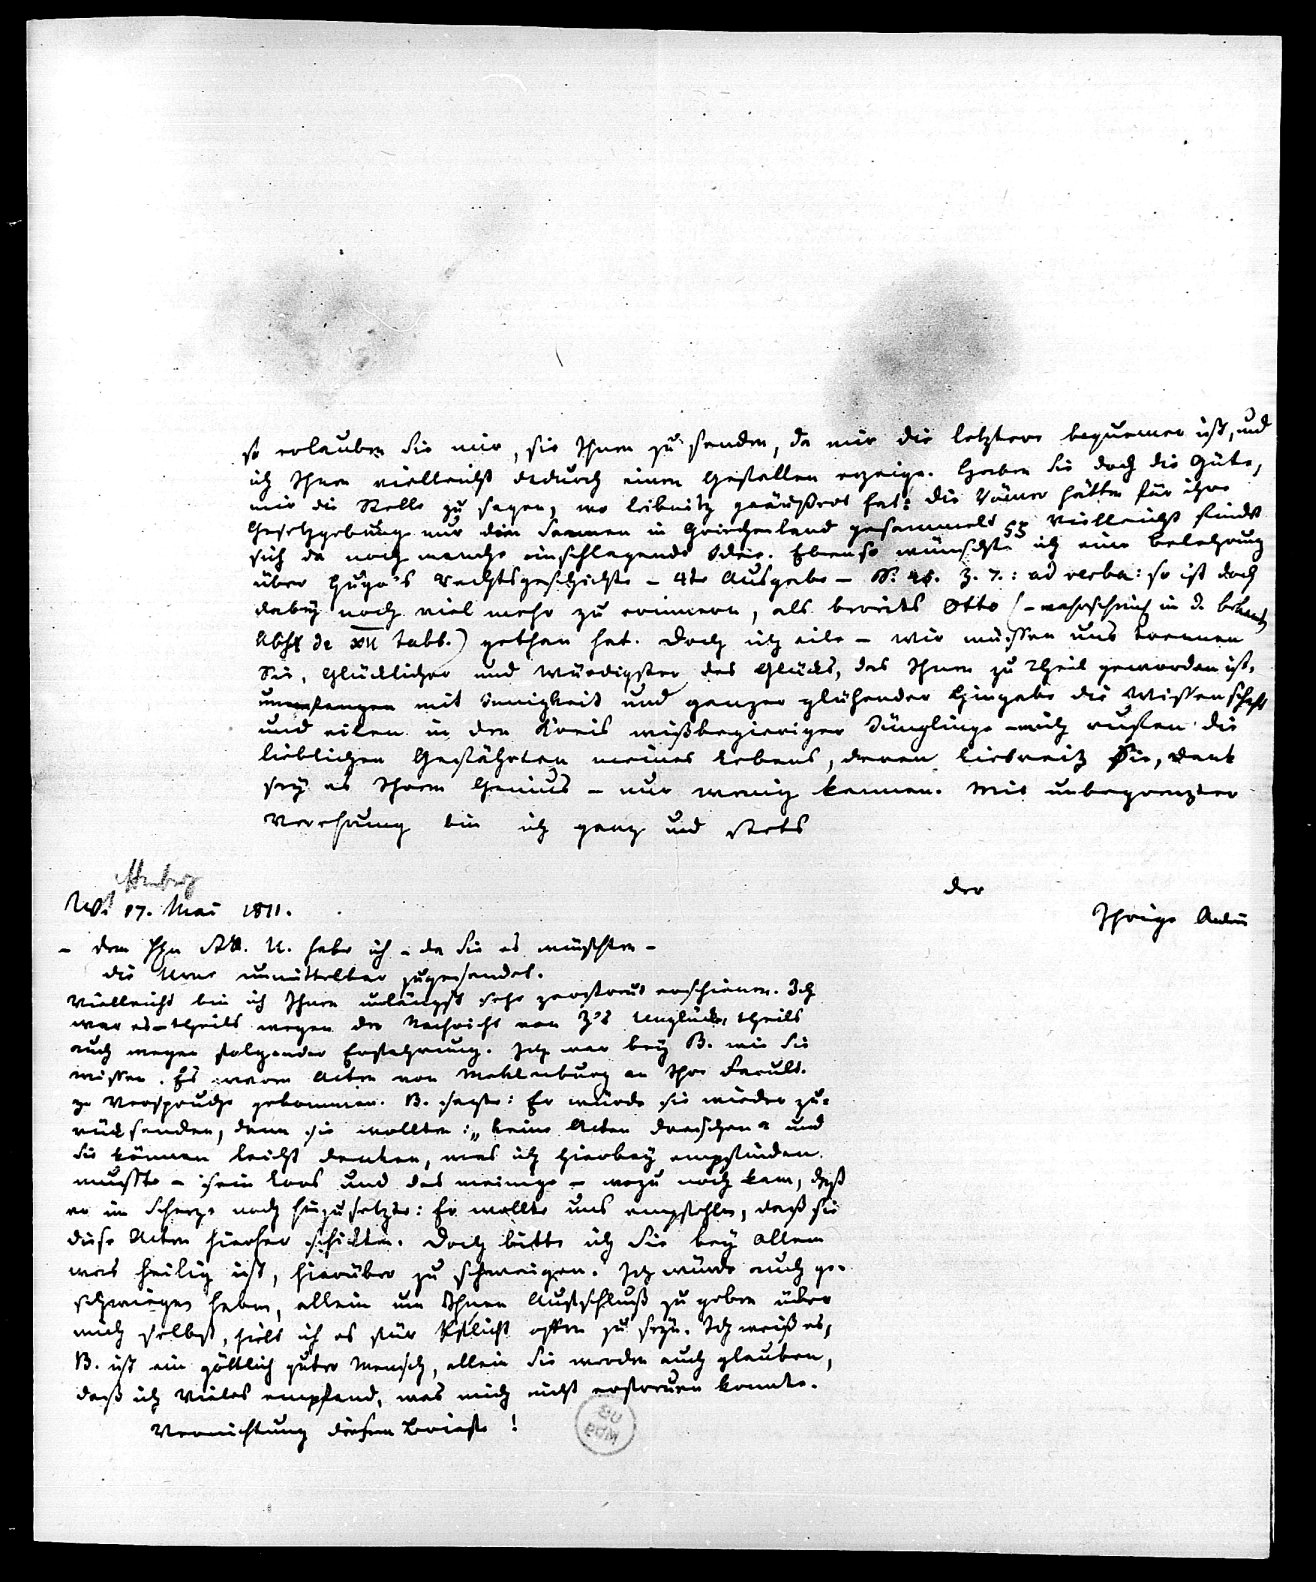 so erlauben Sie mir, sie Ihnen zu senden, da mir die letztere bequemer ist, und
ich Ihnen vielleicht dadurch einen Gefallen erzeige. Haben Sie doch die Güte,
mir die Stelle zu sagen, wo Leibnitz geäußert hat: die Römer hätten für ihre
Gesetzgebung nur den Saamen in Griechenland gesammelt vielleicht findet
sich da noch manche einschlagende Idee. Ebenso wünschte ich eine Belehrung
über Hugo's Rechtsgeschichte – 4te Ausgabe – S. 45. Z. 7.: ad verba: so ist doch
dabey noch viel mehr zu erinnern, als bereits Otto (– wahrscheinlich in d.
Abhl de XII tabb.) gethan hat. Doch ich eile – wir müssen uns trennen
Sie, Glücklicher und Würdigster des Glücks, das Ihnen zu Theil geworden ist,
umfangen mit Innigkeit und ganzer glühender Hingabe die Wissenschaft
und eilen in den Kreis wißbegieriger Jünglinge – mich rufen die
lieblichen Gefährten meines Lebens, deren Liebreitz Sie, Dank
sey es Ihrem Genius – nur wenig kennen. Mit unbegrenzter
Verehrung bin ich ganz und stets
der
Ihrige
17. Mai 1811.
– dem Hhn U. habe ich – da Sie es wünschten –
die unmittelbar zugesendet.
Vielleicht bin ich Ihnen unlängst sehr zerstreut erschienen. Ich
war es – theils wegen der Nachricht von Z's Unglück, theils
auch wegen folgender Erfahrung. Ich war bey B. wie Sie
wissen. Es waren Acten von Meklenburg an Ihre Facult.
zu Verspruche gekommen. B. sagte: Er würde sie wieder zu-
rük senden, denn sie wollten: „keine Acten dreschen" und
Sie können leicht denken, was ich hierbey empfinden
mußte – sein Loos und das meinige – wozu noch kam, daß
er im Scherze noch hinzusetzte: Er wollte uns empfehlen, daß sie
diese Acten hierher schikten. Doch bitte ich Sie bey allem
was heilig ist, hierüber zu schweigen. Ich würde auch ge-
schwiegen haben, allein um Ihnen Aufschluß zu geben über
mich selbst, hielt ich es für Pflicht offen zu seyn. Ich weiß es,
B. ist ein göttlich guter Mensch, allein Sie werden auch glauben,
daß ich Vieles empfand, was mich nicht erfreuen konnte.
Vernichtung diesem Briefe!